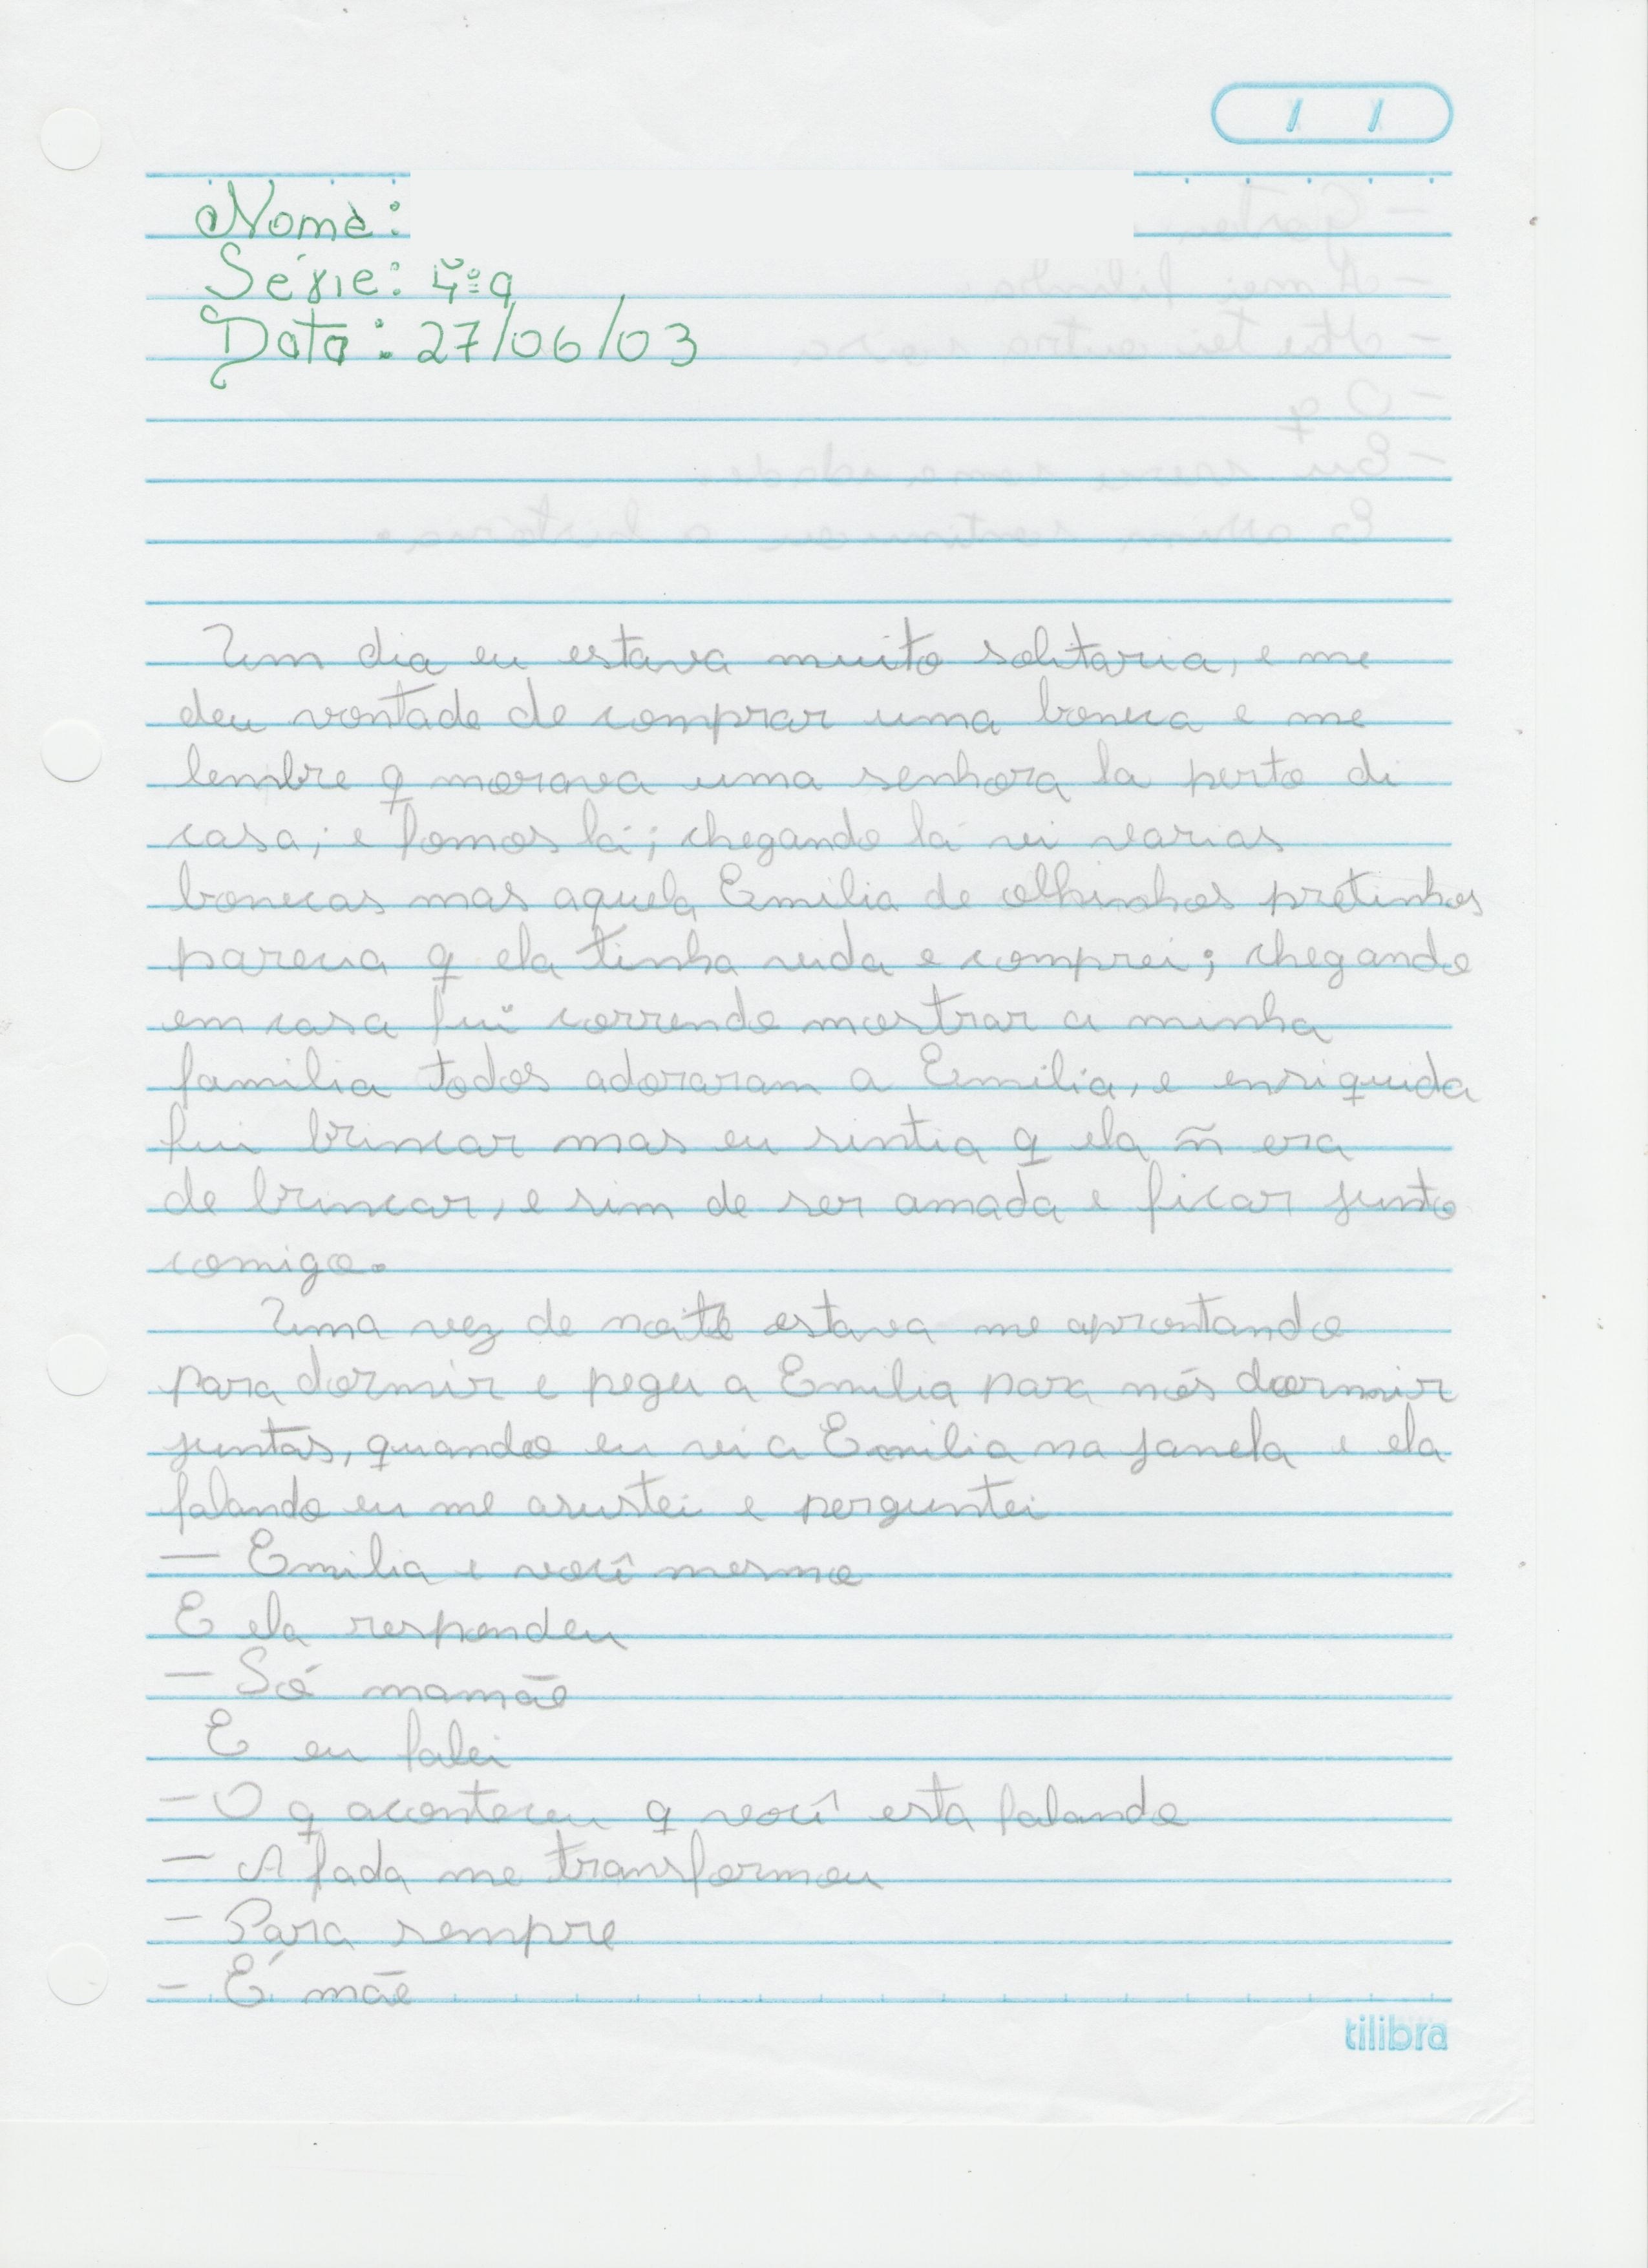 Nome:
Série: 4ª a
Data: 27/06/03
Um dia eu estava muito solitaria, e me
deu vontade de comprar uma boneca e me
lembre q morava uma senhora la perto di
casa; e fomos lá; chegando lá vi varias
bonecas mas aquela Emilia de olhinhos pretinhos
parecia q ela tinha vida e comprei; chegando
em casa fui correndo mostrar a minha
familia todos adoraram a Emilia, e ensiquida
fui brincar mas eu sintia q ela ñ era
de brincar, e sim de ser amada e ficar junto
comigo.
Uma vez de noite estava me aprontando
para dormir e pegei a Emilia para nós dormir
juntas, quando eu vi a Emilia na janela e ela
falando eu me asustei e perguntei
— Emilia e você mesmo
E ela respondeu
— Só mamãe
E eu falei
— O q aconteceu q você esta falando
— A fada me transformou
— Para sempre
— É mãe
tilibra